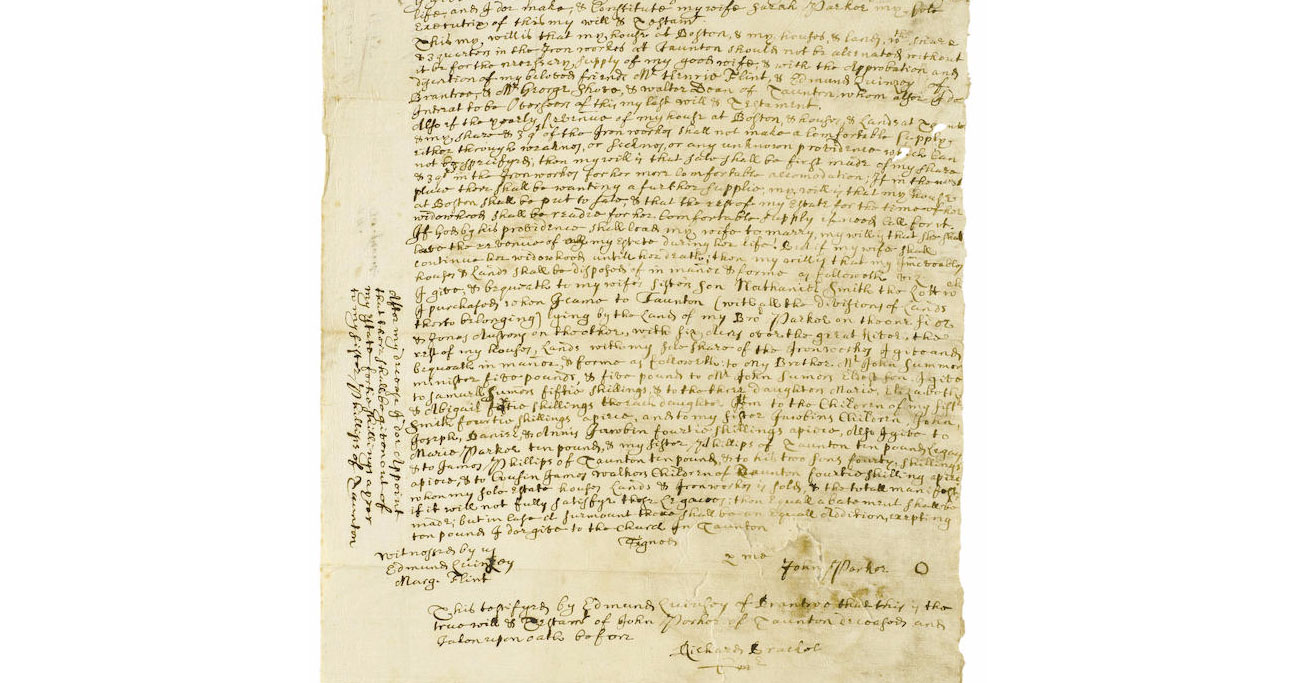 life, and I doe make, & Constitute my wife Sarah Parker my sole
Executrix of this my will & Testamt
This my will is that my house at Boston, & my houses, & lands, wth share &
& 3 quarters in the Iron workes at Taunton should not be alienated without
it be for the necessary supply of my good wife, & with the Approbation and
of my beloved friends Mr Henrie Flint, & Edmund Quinsey
Braintree, & Mr George Shove, & walter Dean of Taunton, whom also I do
Intreat to be Overseers of this my last will & Testament.
Also if the yearly revenue of my house at Boston, & houses & Lands at
& my share & 3 qrs of the Iron workes shall not make a Comfortable supply
either through weaknes, or sicknes, or any unknown providence which Can
not be specifyed, then my will is that sale shall be first made of my share
& 3 qrs in the Ironworkes for her more Comfortable accomodation, If in the next
place there shall be wanting a further supplie, my will is that my house
at Boston shall be put to sale, & that the rest of my Estate for the time of her
widowhood shall be readie for her Comfortable supply if need Call for it.
If God by his providence shall lead my wife to marry, my will is that she shall
have the revenue of my Estate during her life, But if my wife shall
continue her widowhood untill her death; then my will is that my
houses & Lands shall be disposed of in maner & forme as followeth viz
I give, & bequeath to my wifes sisters son Nathaniel Smith the Lott
I purchased when I came to Taunton (with all the divisions of Lands
thereto belonging) lying by the Land of my Bro: Parker on the one side
& Jonas Austens on the other, with six Acres over the great River, the
rest of my houses, Lands with my sole share of the Ironworkes I give and
bequeath in maner, & forme as followeth; to my Brother Mr John Summer
minister five pounds, & five pound to Mr John Sumers Eldest son, I give
to samuell Sumers fiftie shillings, & to the three daughters Marie, Elizabeth
& Abigail fiftie shillings the each daughter Item to the Children of my sist
Smith fourtie shillings apiece, and to my sister Jacobins Children, John,
Joseph, Daniel, & Annis Jacobin fourtie shillings apiece, Also I give to
Marie Parker ten pounds, & my sister Phillips of Taunton ten pounds Legacy
& to James Phillips of Taunton ten pound, & to his two sons fourty shillings
apiece, & to Cousin James walkers Children of Taunton fourtie shilling apiece
when my sole Estate houses Lands & Ironworkes is sold, & the totall manifest
if it will not fully satisfye these Legacies; then equall abatement shall be
made; but in Case it surmount there shall be an equall Addition, excepting
ten pound I doe give to the Church In Taunton
After my decease I doe Appoint
that there shall be given out of
my Estate fortie shillings a year
to my sister Phillips of Taunton
Signed
Witnessed by us
Edmund Quinsey
Marg. Flint
me
John Parker
This testifyed by Edmund Quinsey of Braintree that this is the
true will & Testamt of John Parker of Taunton deceased and
Taken upon oath before
Richard Brackett